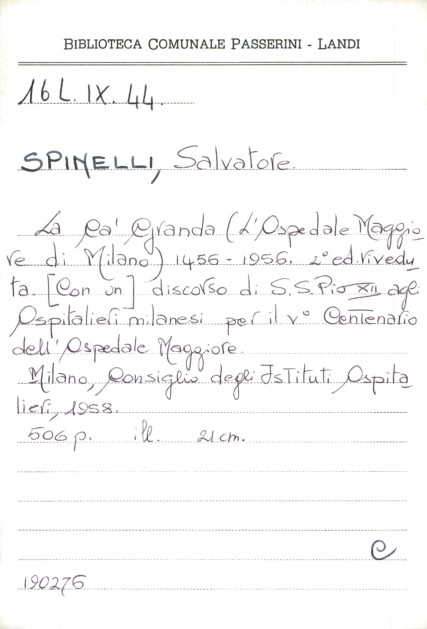 BIBLIOTECA COMUNALE PASSERINI - LANDI
16 L. IX. 44.
SPINELLI, Salvatore.
La Ca' Granda (L'Ospedale Maggio-
re di Milano) 1456 - 1956. 2° ed. rivedu
ta. [Con un] discorso di S.S. Pio XII agli
Ospitalieri milanesi per il V° Centenario
dell'Ospedale Maggiore.
Milano, Consiglio degli Istituti Ospita
lieri, 1958.
506 p. ill. 21 cm.
C
190276